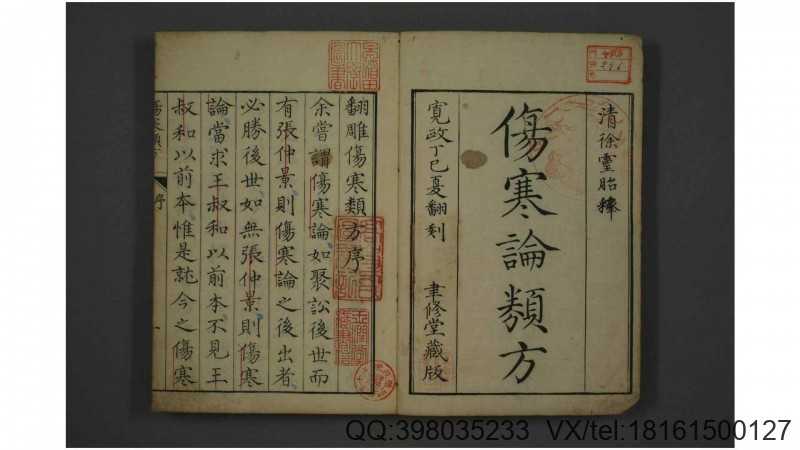 清徐靈胎釋
傷寒論類方
寬政丁巳夏翻刻 聿修堂藏版
翻雕傷寒類方序
余嘗謂傷寒論如聚訟後世而
有張仲景則傷寒論之後出者
必勝後世如無張仲景則傷寒
論當求王叔和以前本不見王
叔和以前本惟是就今之傷寒
序
一
QQ:398035233 VX/tel:18161500127